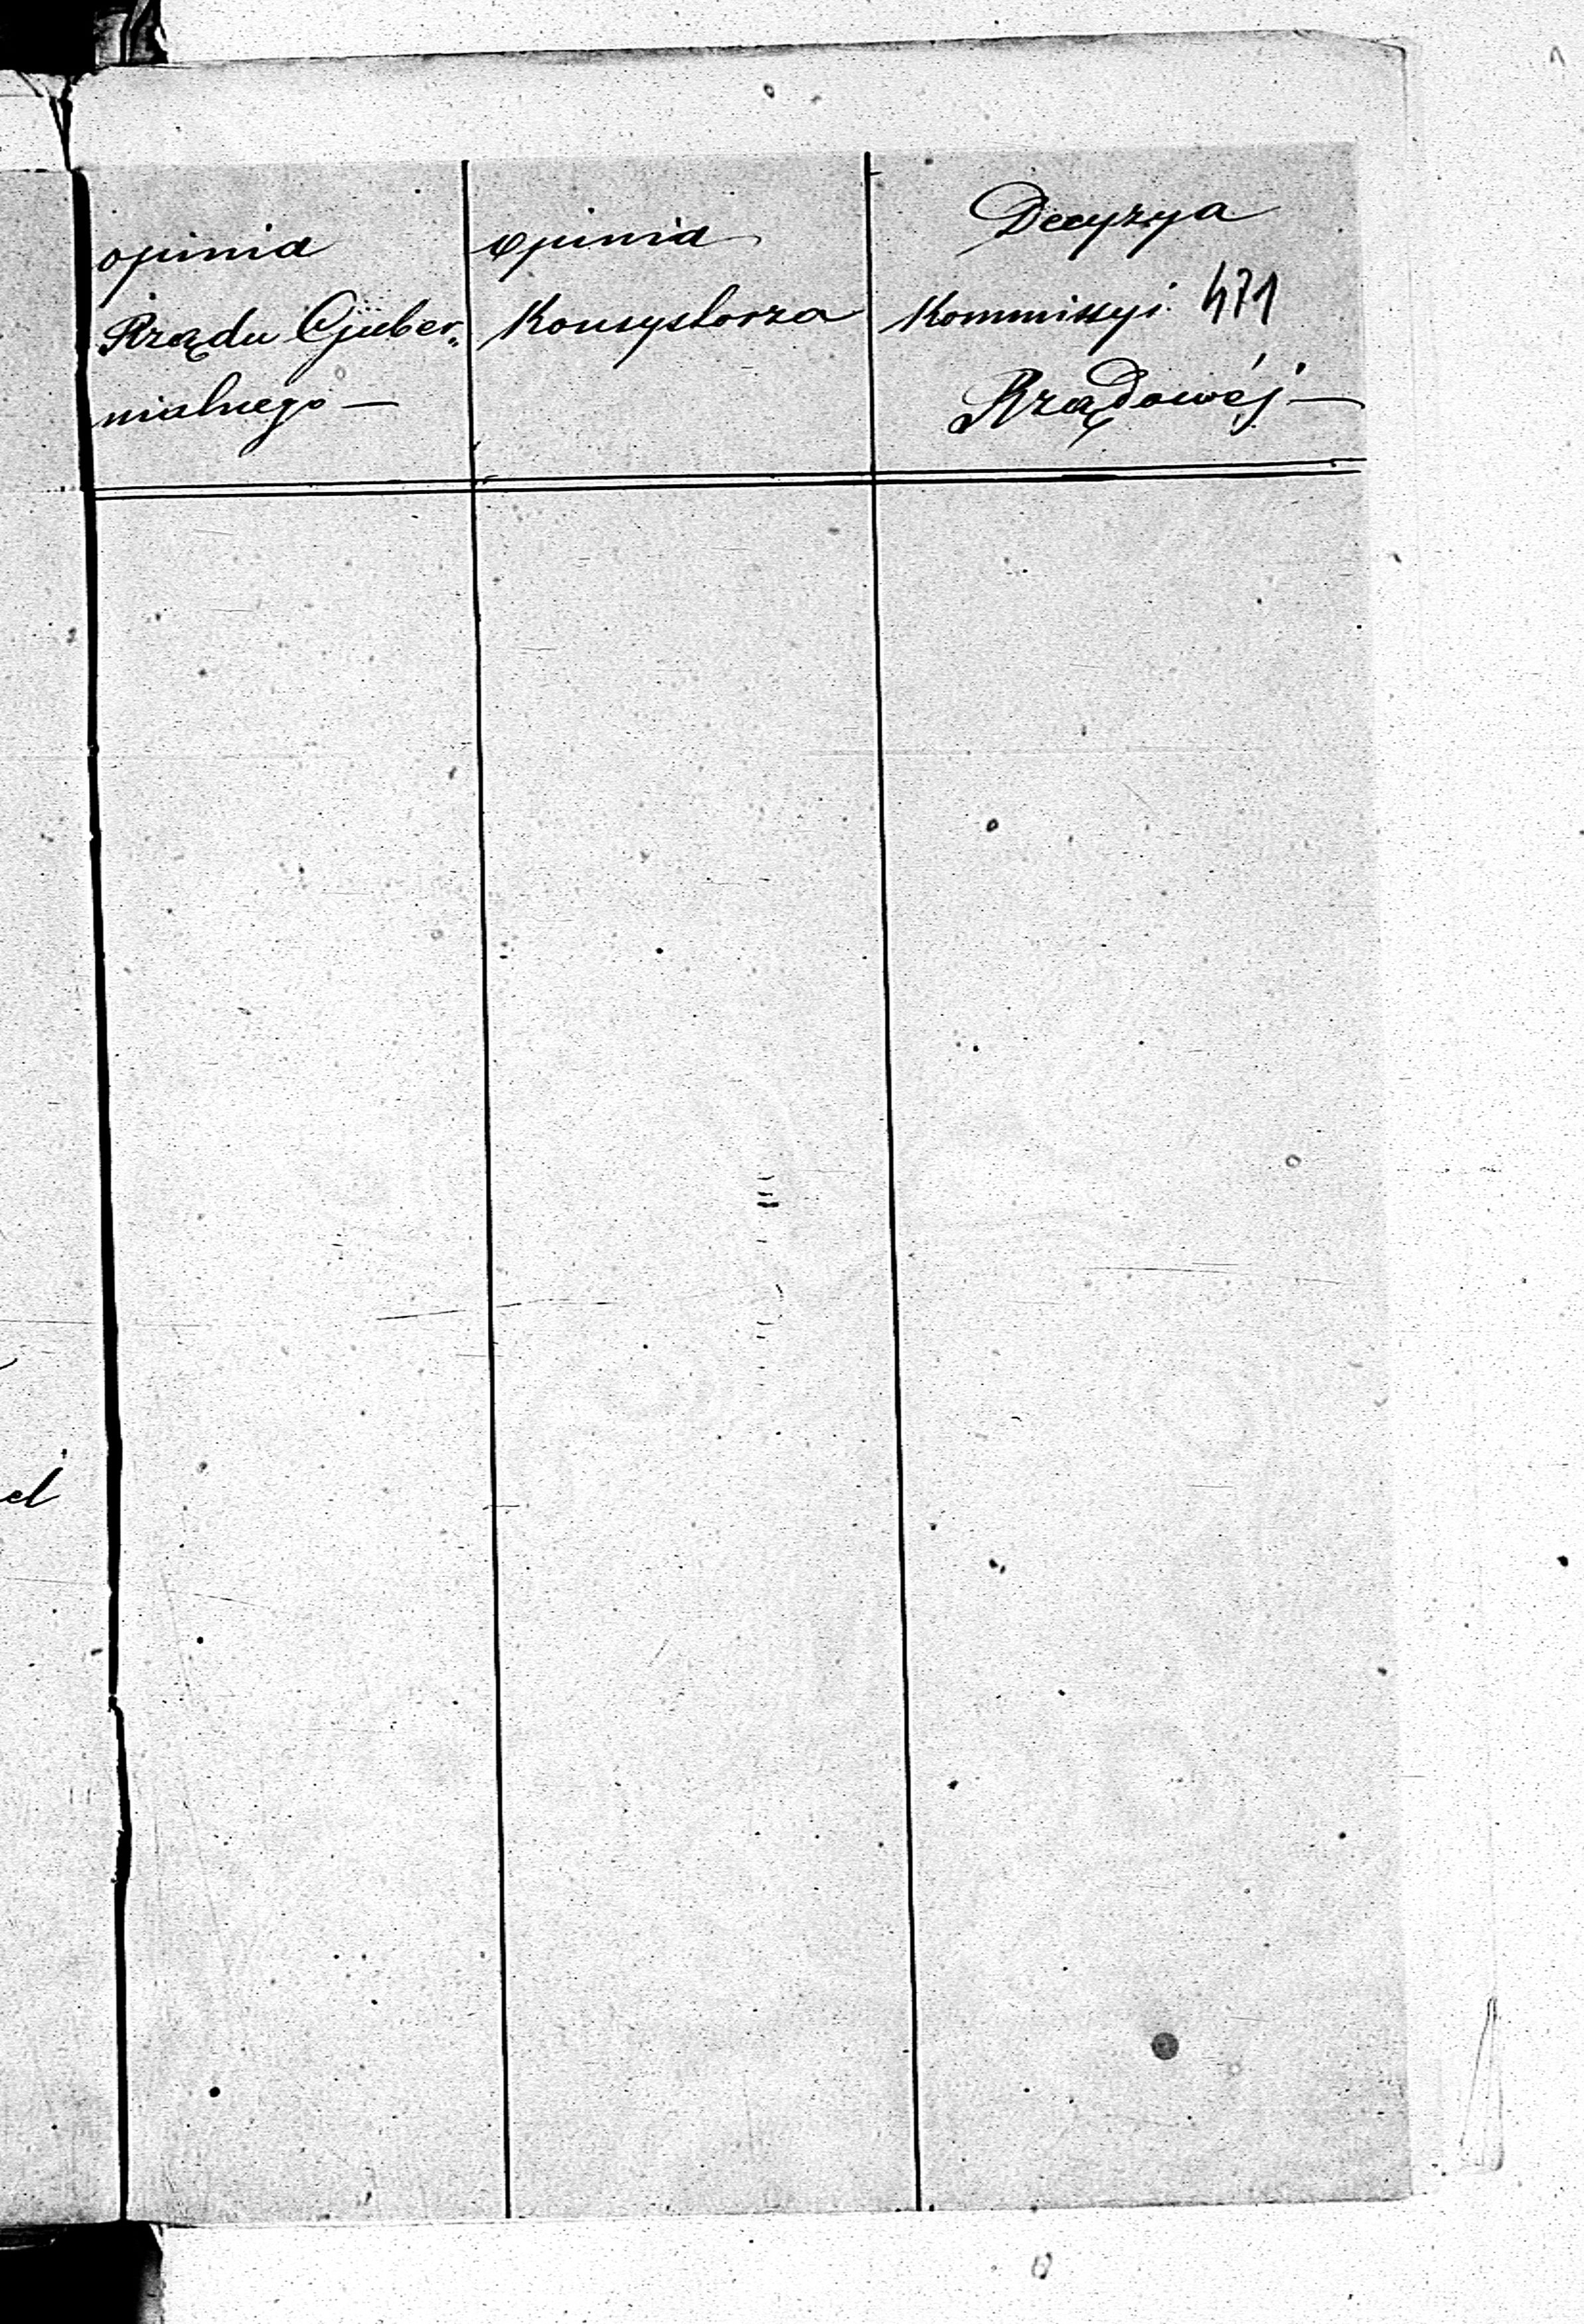 opinia
Rządu Guber„
nialnego —
opinia
Konsystorza
Decyzya
Kommissyi 471
Rządowéj —